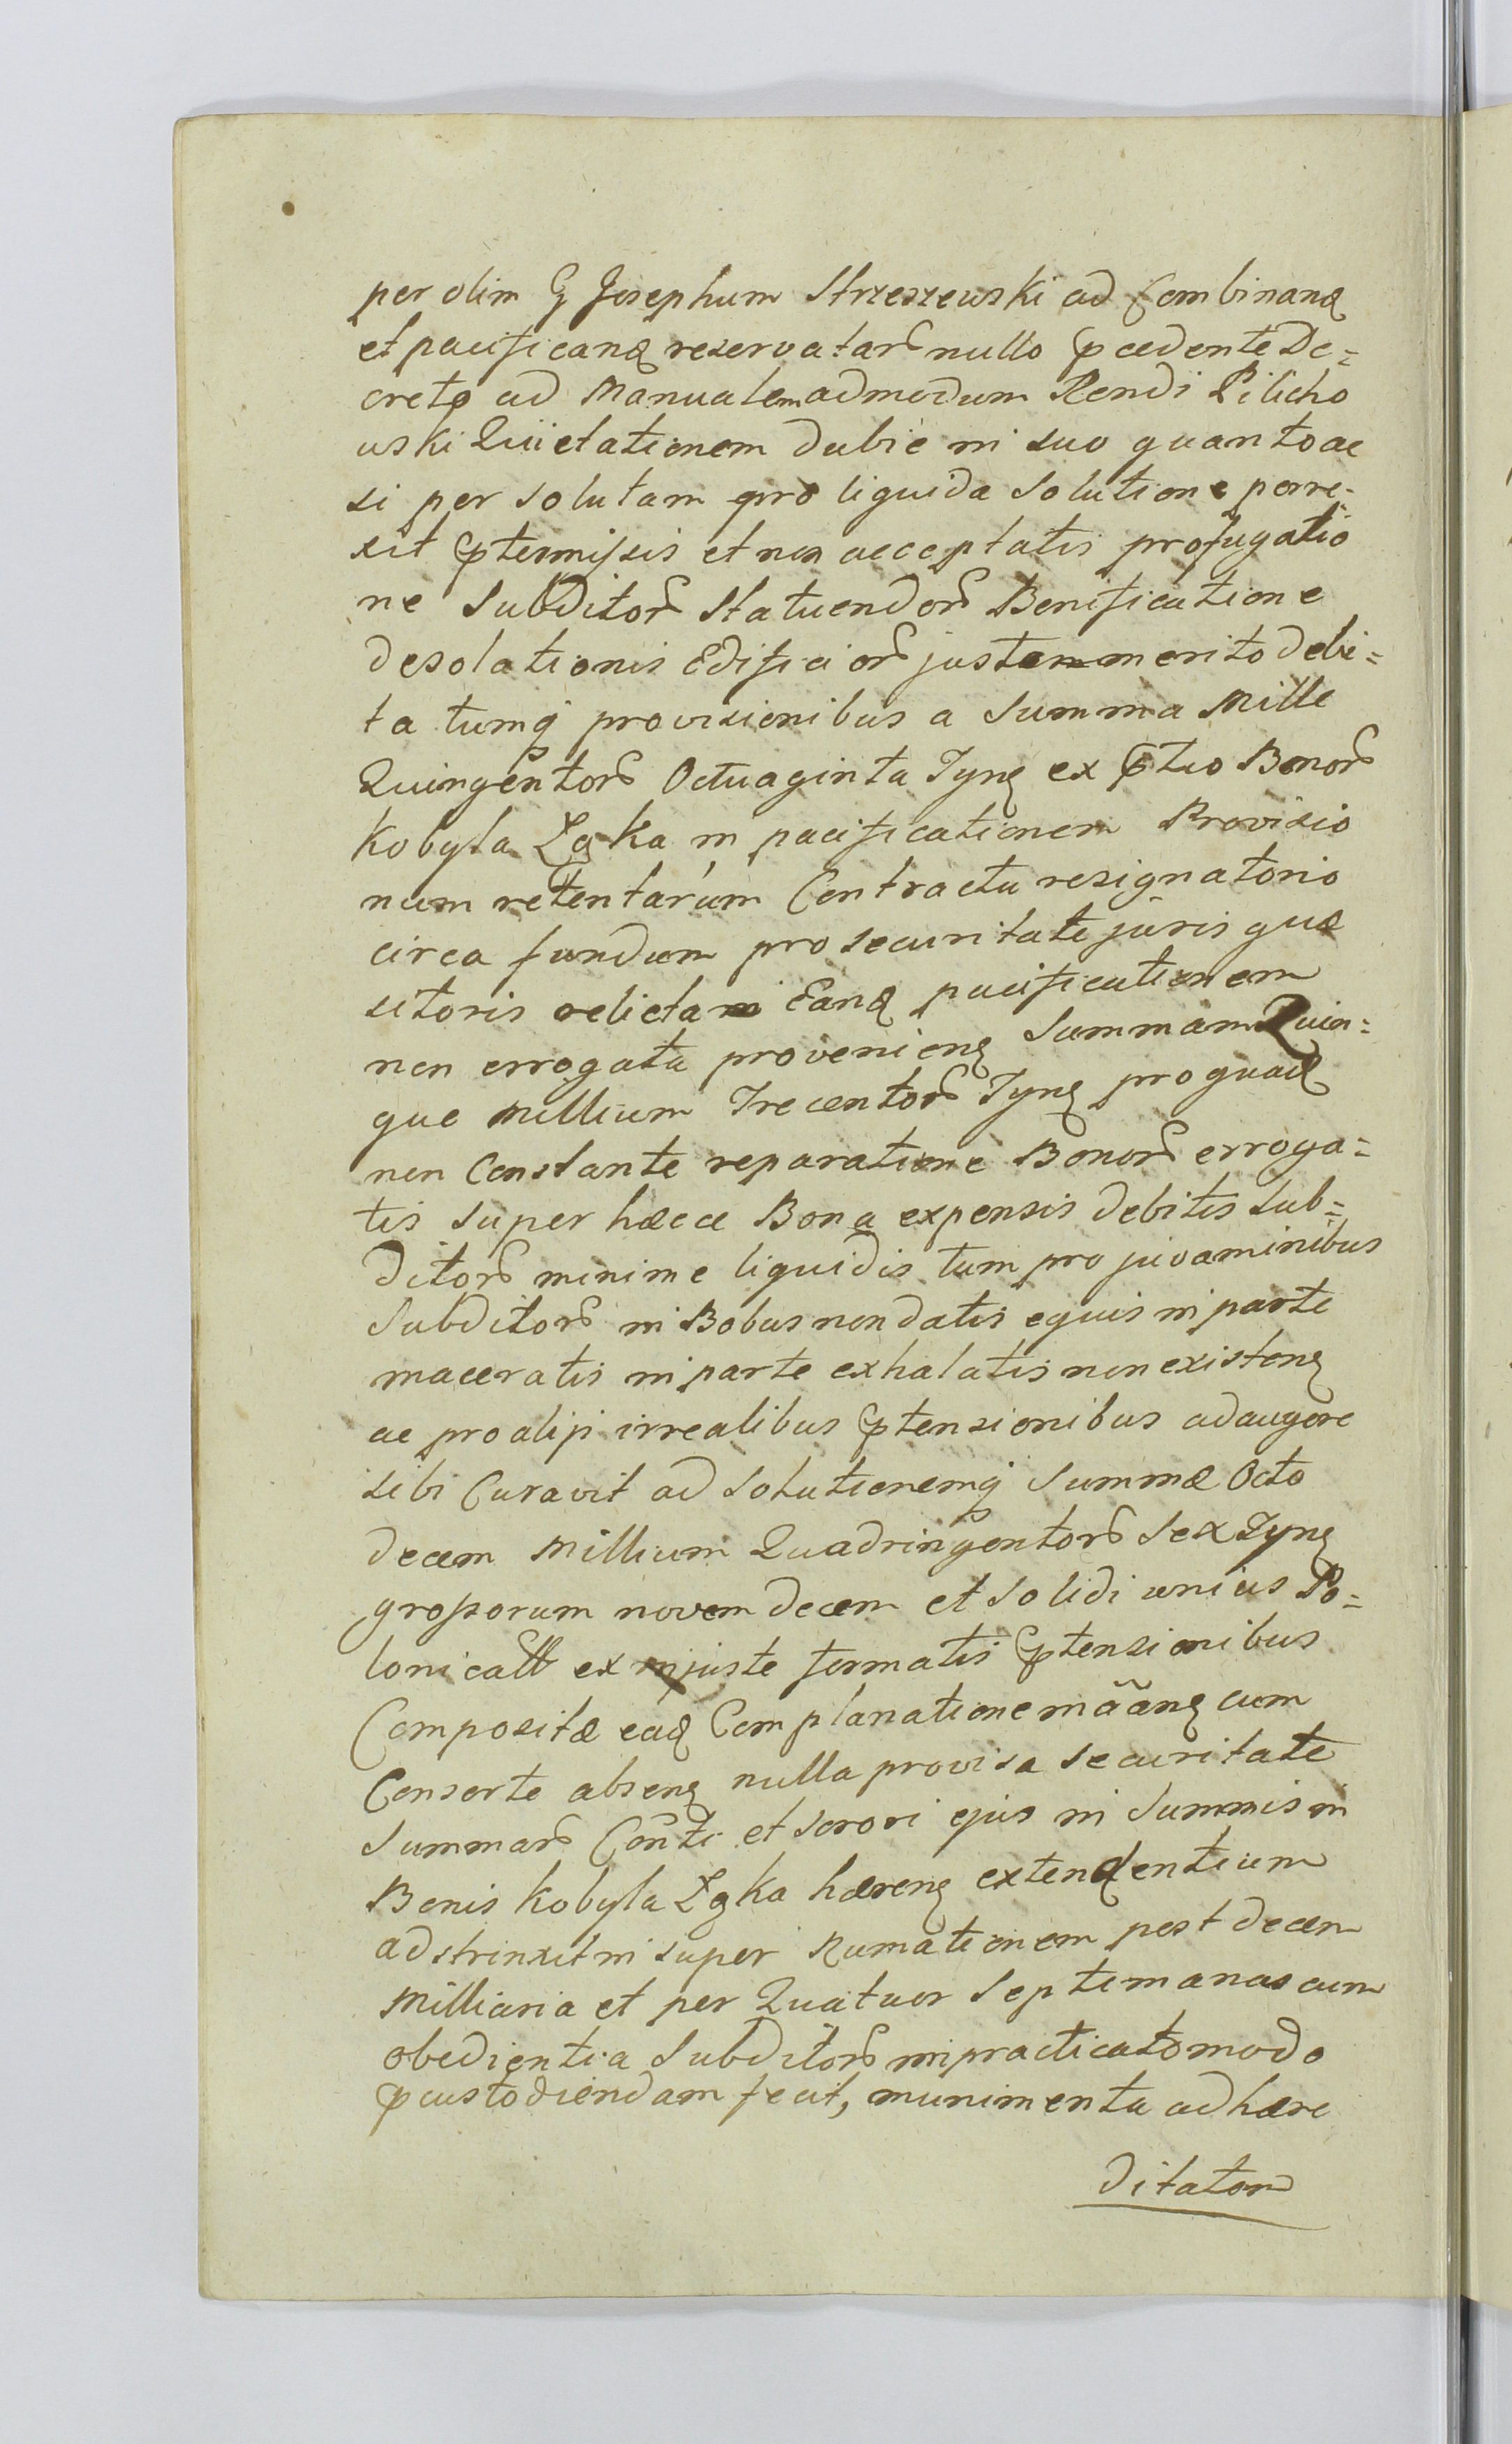 per olim G Josephum Strzeszewski ad Combinanꝗ
et pacificanꝗ reservatarꝰ nullo ꝓcedente De=
creto ad Manualem admodum Rendi Pilicho
wski Quietationem dubie in suo quanto ac
si per solutam pro liquida solutione perre-
xit ꝓtermissis et non acceptatis profugatio
ne Subditorꝰ Statuendorꝰ Benificatione
desolationis Edificiorꝰ juste in merito debi=
ta tumq provisionibus a Summa Mille
Quingentorꝰ Octuaginta Tynꝗ ex ꝓtio Bonorꝰ
Kobyla Łąka in pacificationem Provisio
num retentarum Contractu resignatorio
circa fundum pro securitate juris quæ
sitoris relicta in Eanꝗ pacificationem
non errogata provenienꝗ Summam Quin=
que Millium Trecentorꝰ Tynꝗ pro quaꝗ
non Constante reparatione Bonorꝰ erroga=
tis super hæcce Bona expensis debitis sub=
ditorꝰ minime liquidis tum pro juvaminibus
Subditorꝰ in Bobus non datis equis in parte
maceratis in parte exhalatis non existenꝗ
ac pro alijs irrealibus ꝓtensionibus adaugere
sibi Curavit ad Solutionemq Summæ Octo
decem Millium Quadringentorꝰ Sex Tynꝗ
grossorum novem decem et Solidi unius Po=
lonicall ex injuste formatis ꝓtensionibus
Compositæ eaꝗ Complanatione mãanꝗ cum
Consorte absenꝗ nulla provisa securitate
Summarꝰ Cond̃ti et Sorori ejus in Summis in
Bonis Kobyla Łąka hærenꝗ extendentium
adstrinxit in super Rumationem post decem
Milliaria et per Quatuor Septimanas cum
obedientia Subditorꝰ impracticato modo
ꝓcustodiendam fecit, munimenta ad hære
ditatem